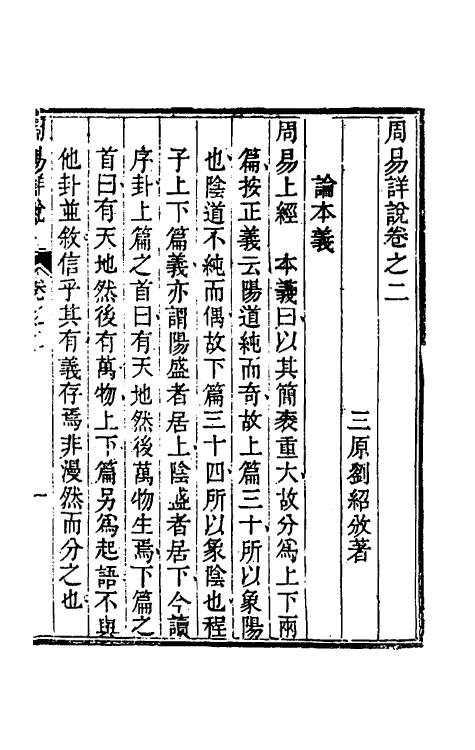 周易詳說卷之二
三原劉紹攽著
論本義
周易上經　本義曰以其簡袠重大故分為上下兩
篇按正義云陽道純而奇故上篇三十所以象陽
也陰道不純而偶故下篇三十四所以象陰也程
子上下篇義亦謂陽盛者居上陰盛者居下今讀
序卦上篇之首曰有天地然後萬物生焉下篇之
首曰有天地然後有萬物上下篇另為起語不與
他卦並敘信乎其有義存焉非漫然而分之也
周易詳說　卷之二　一